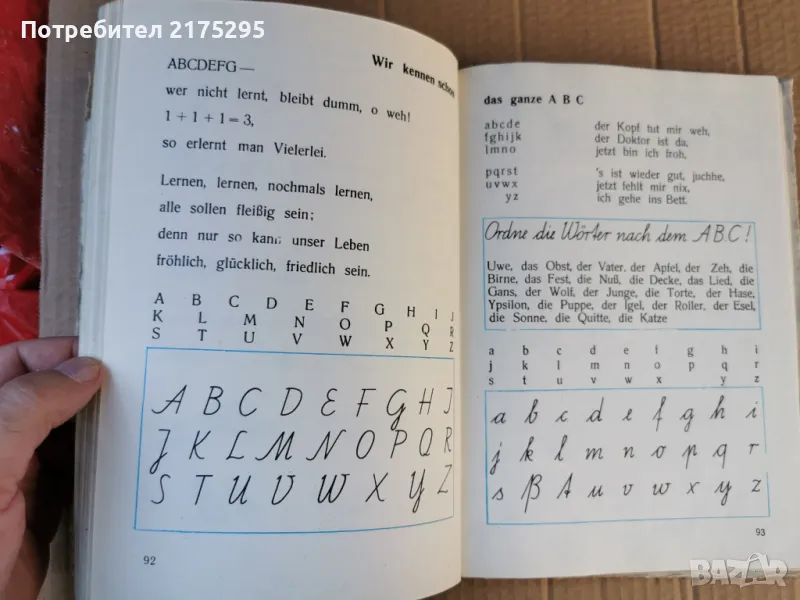 Потребител 2175295
Wir kennen schon
ABCDEFG—
wer nicht lernt, bleibt dumm, o weh!
1 + 1 + 1 = 3,
so erlernt man Vielerlei.
Lernen, lernen, nochmals lernen,
alle sollen fleißig sein;
denn nur so kann unser Leben
fröhlich, glücklich, friedlich sein.
A B C D E F G H I J
K L M N O P Q R
S T U V W X Y Z
A B C D E F G H I
J K L M N O P Q R
S T U V W X Y Z
92
das ganze A B C
abcde der Kopf tut mir weh,
fghijk der Doktor ist da,
lmno jetzt bin ich froh,
pqrst 's ist wieder gut, juchhe,
uvwx jetzt fehlt mir nix,
yz ich gehe ins Bett.
Ordne die Wörter nach dem ABC!
Uwe, das Obst, der Vater, der Apfel, der Zeh, die
Birne, das Fest, die Nuß, die Decke, das Lied, die
Gans, der Wolf, der Junge, die Torte, der Hase,
Ypsilon, die Puppe, der Igel, der Roller, der Esel,
die Sonne, die Quitte, die Katze
a b c d e f g h i
j k l m n o p q r
s t u v w x y z
a b c d e f g h i
j k l m n o p q r
s ß t u v w x y z
93
BAZAR